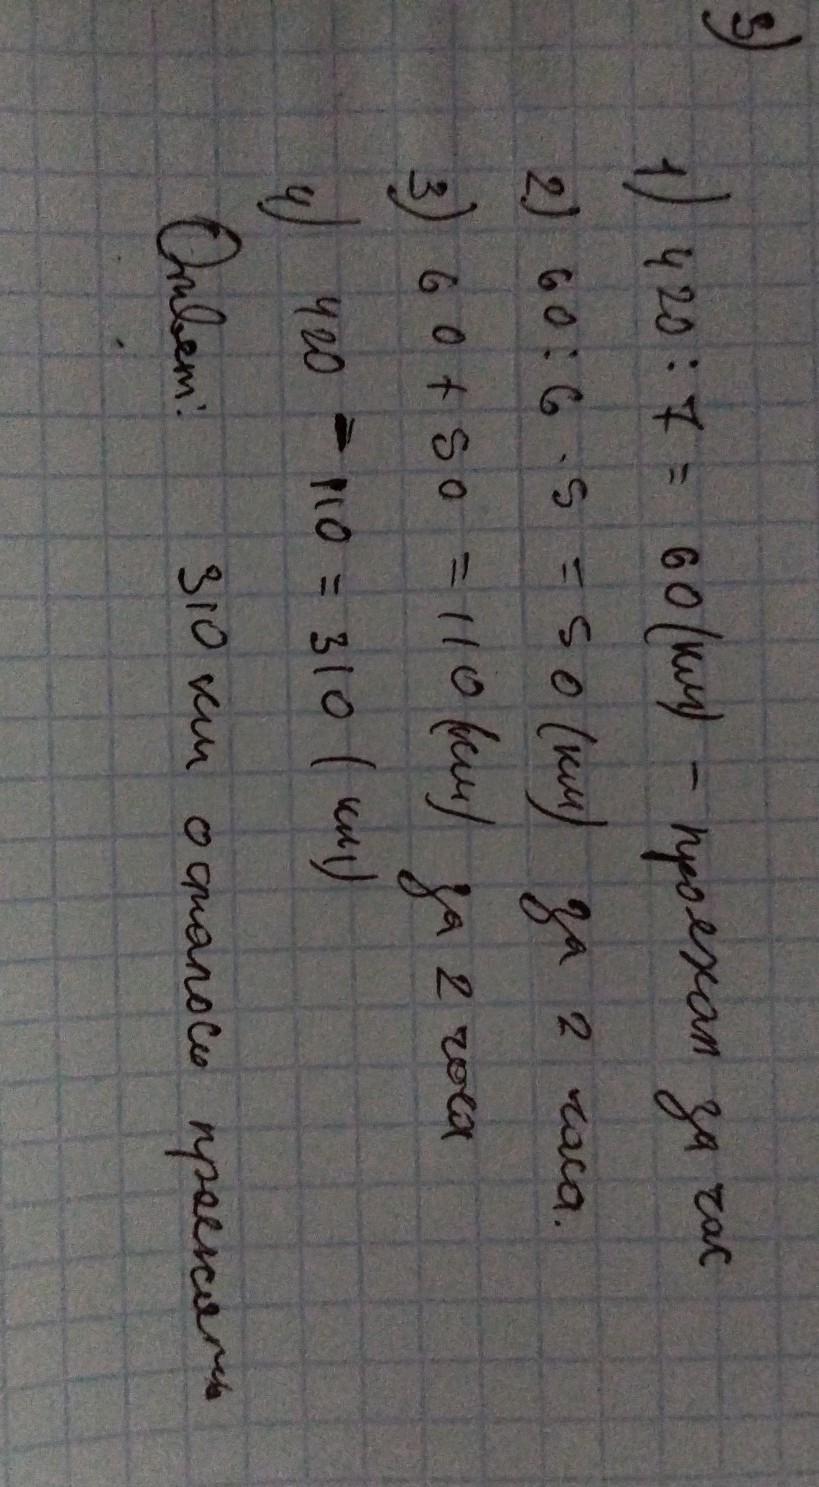 3)
1) 420 : 7 = 60 (км) - проехал за час
2) 60 : 6 · 5 = 50 (км) за 2 часа.
3) 60 + 50 = 110 (км) за 2 часа
4) 420 - 110 = 310 (км)
Ответ: 310 км осталось проехать